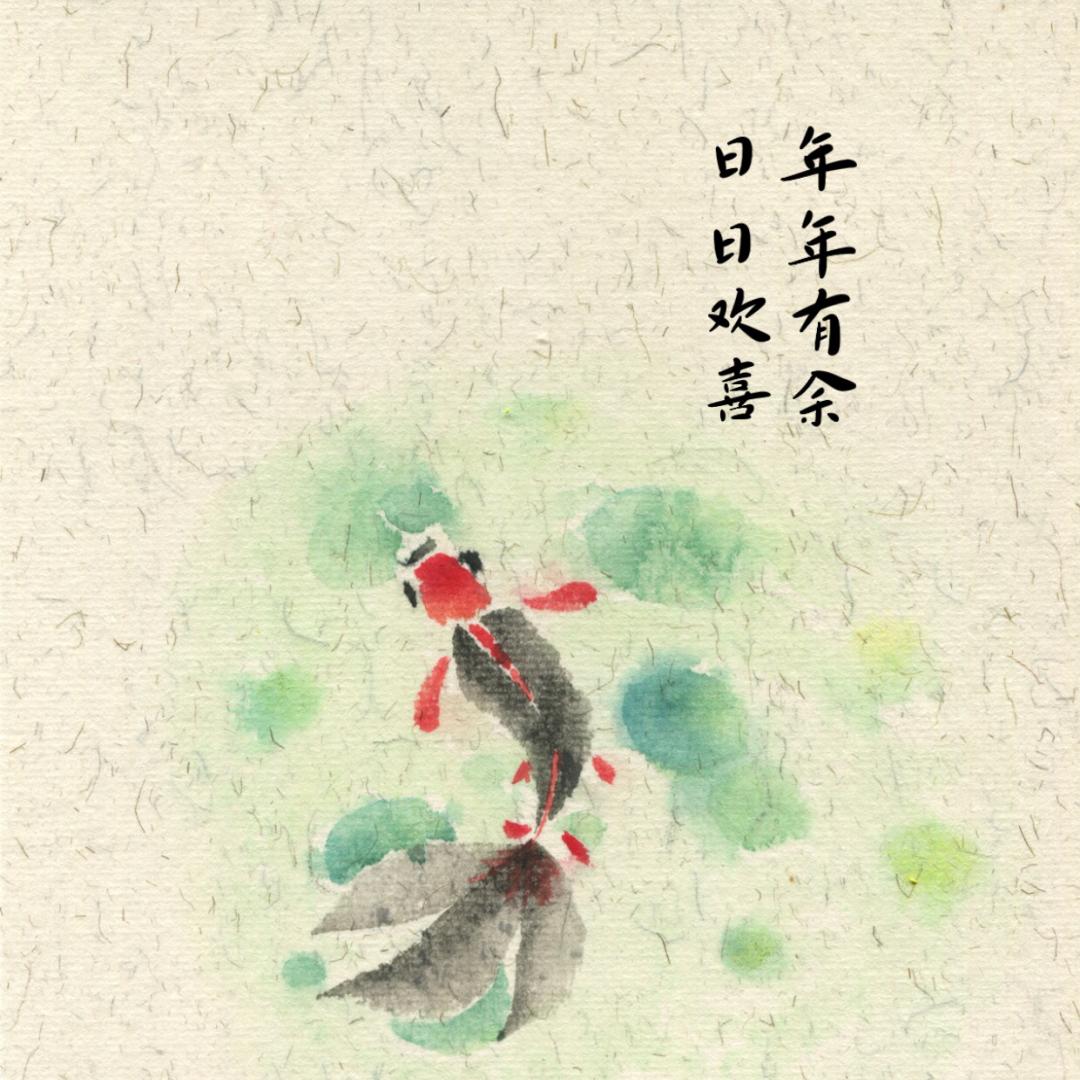 年年有余
日日欢喜